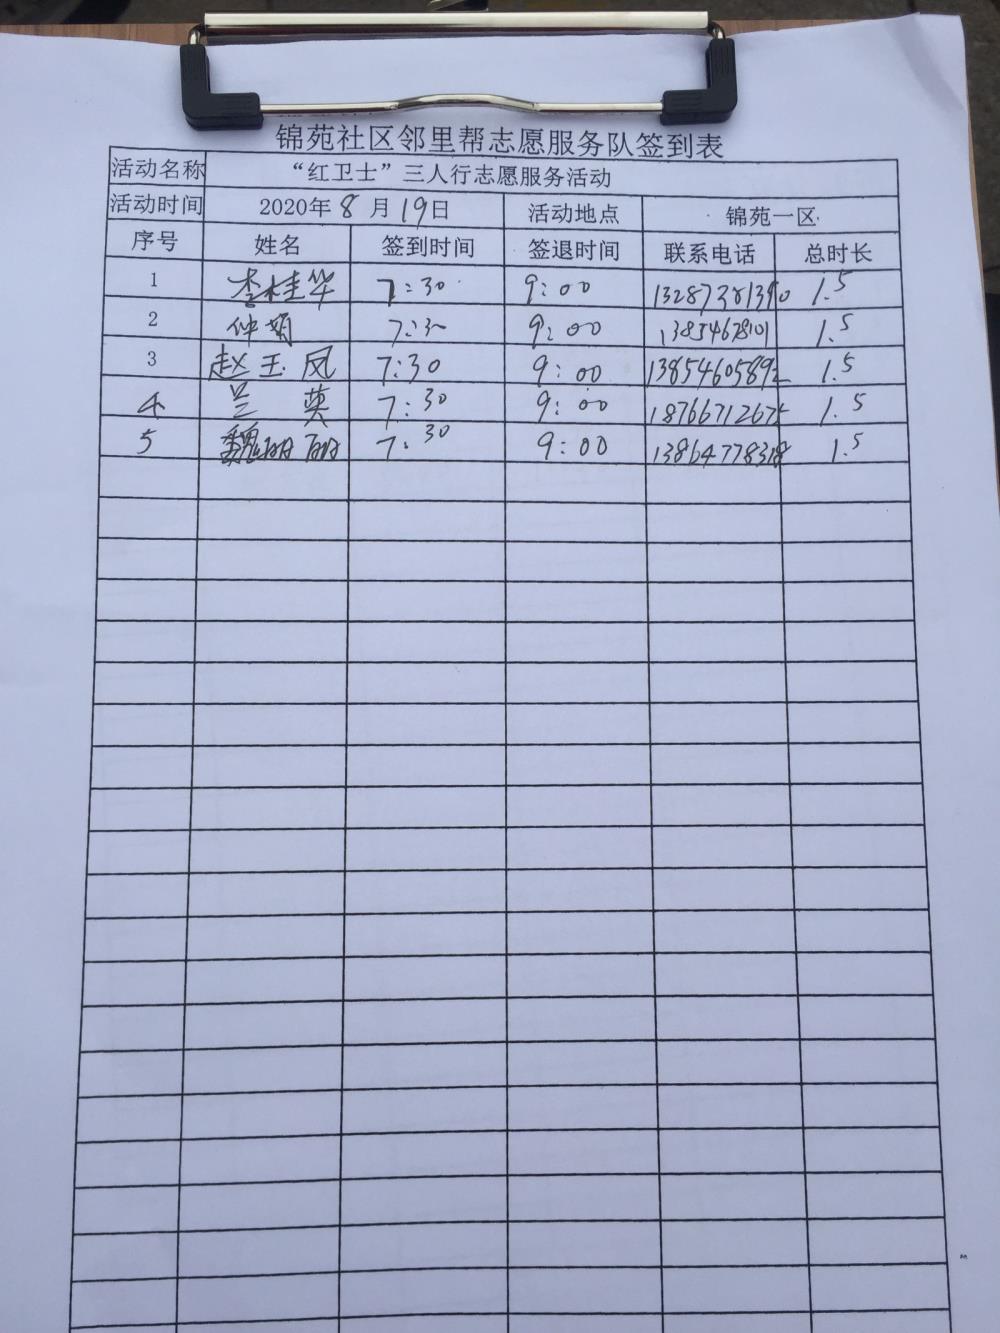 锦苑社区邻里帮志愿服务队签到表
活动名称 “红卫士”三人行志愿服务活动
活动时间 2020年8月19日 活动地点 锦苑一区
序号 姓名 签到时间 签退时间 联系电话 总时长
1 李桂华 7:30 9:00 1.5
2 仲娟 7:30 9:00 13854678101 1.5
3 赵玉凤 7:30 9:00 13854605892 1.5
4 兰英 7:30 9:00 1.5
5 魏丽丽 7:30 9:00 1.5